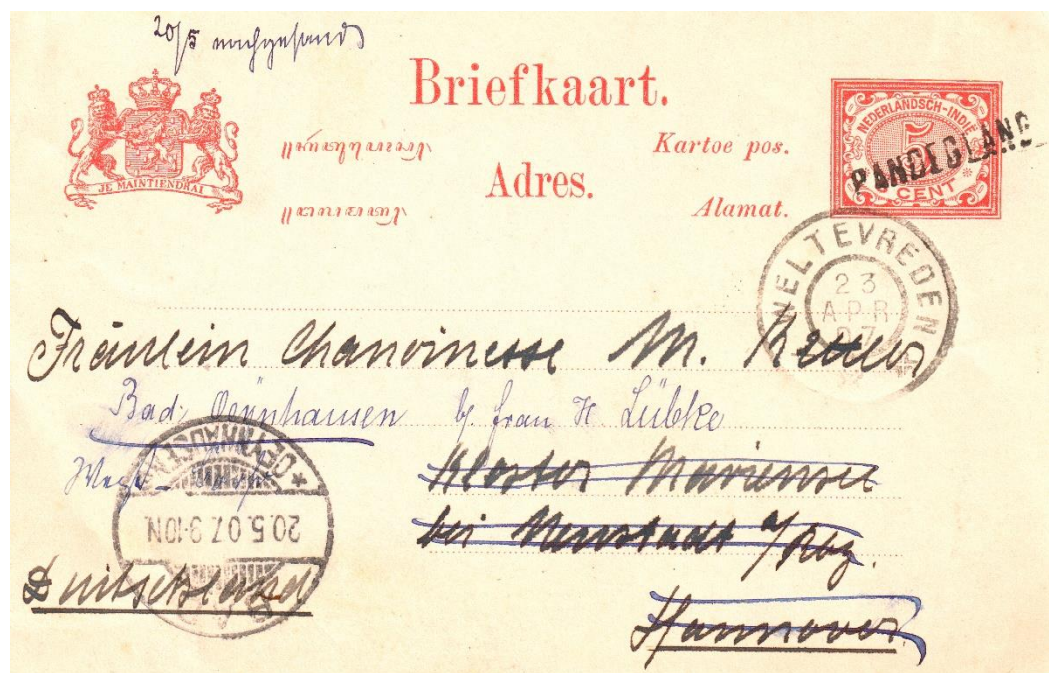 20/5 nachgesandt
Briefkaart.
JE MAINTIENDRAI
Kartoe pos.
Adres.
Alamat.
NEDERLANDSCH-INDIË
5
CENT
PANDEGLANG
WELTEVREDEN
23
APR
07
Fräulein Chanoinesse M.
Bad Oeynhausen b. Frau H Lübke
Kloster Mariensee
bei Neustadt a/Rbg.
Hannover
* OEYNHAUSEN *
20.5.07.9-10N.
BAD
Duitschland